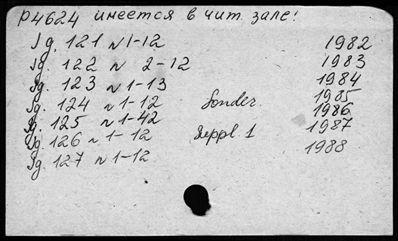 P4624 имеется в чит. зале!
Jg. 121 N 1-12 1982
Jg. 122 N 2-12 1983
Jg. 123 N 1-13 1984
Jg. 124 N 1-12 Sonder 1985
Jg. 125 N 1-42 1986
Jg. 126 N 1-12 1 1987
Jg. 127 N 1-12 1988